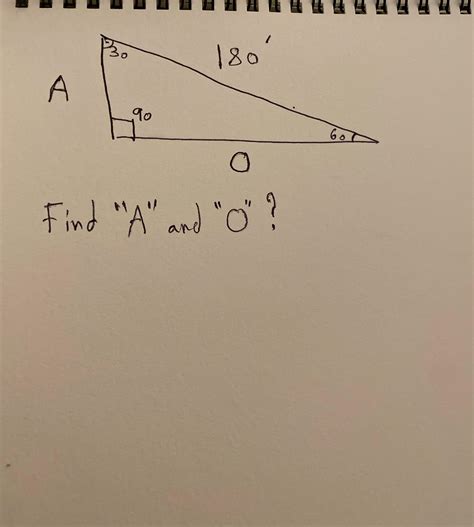 30
180'
A
90
60
O
Find "A" and "O"?